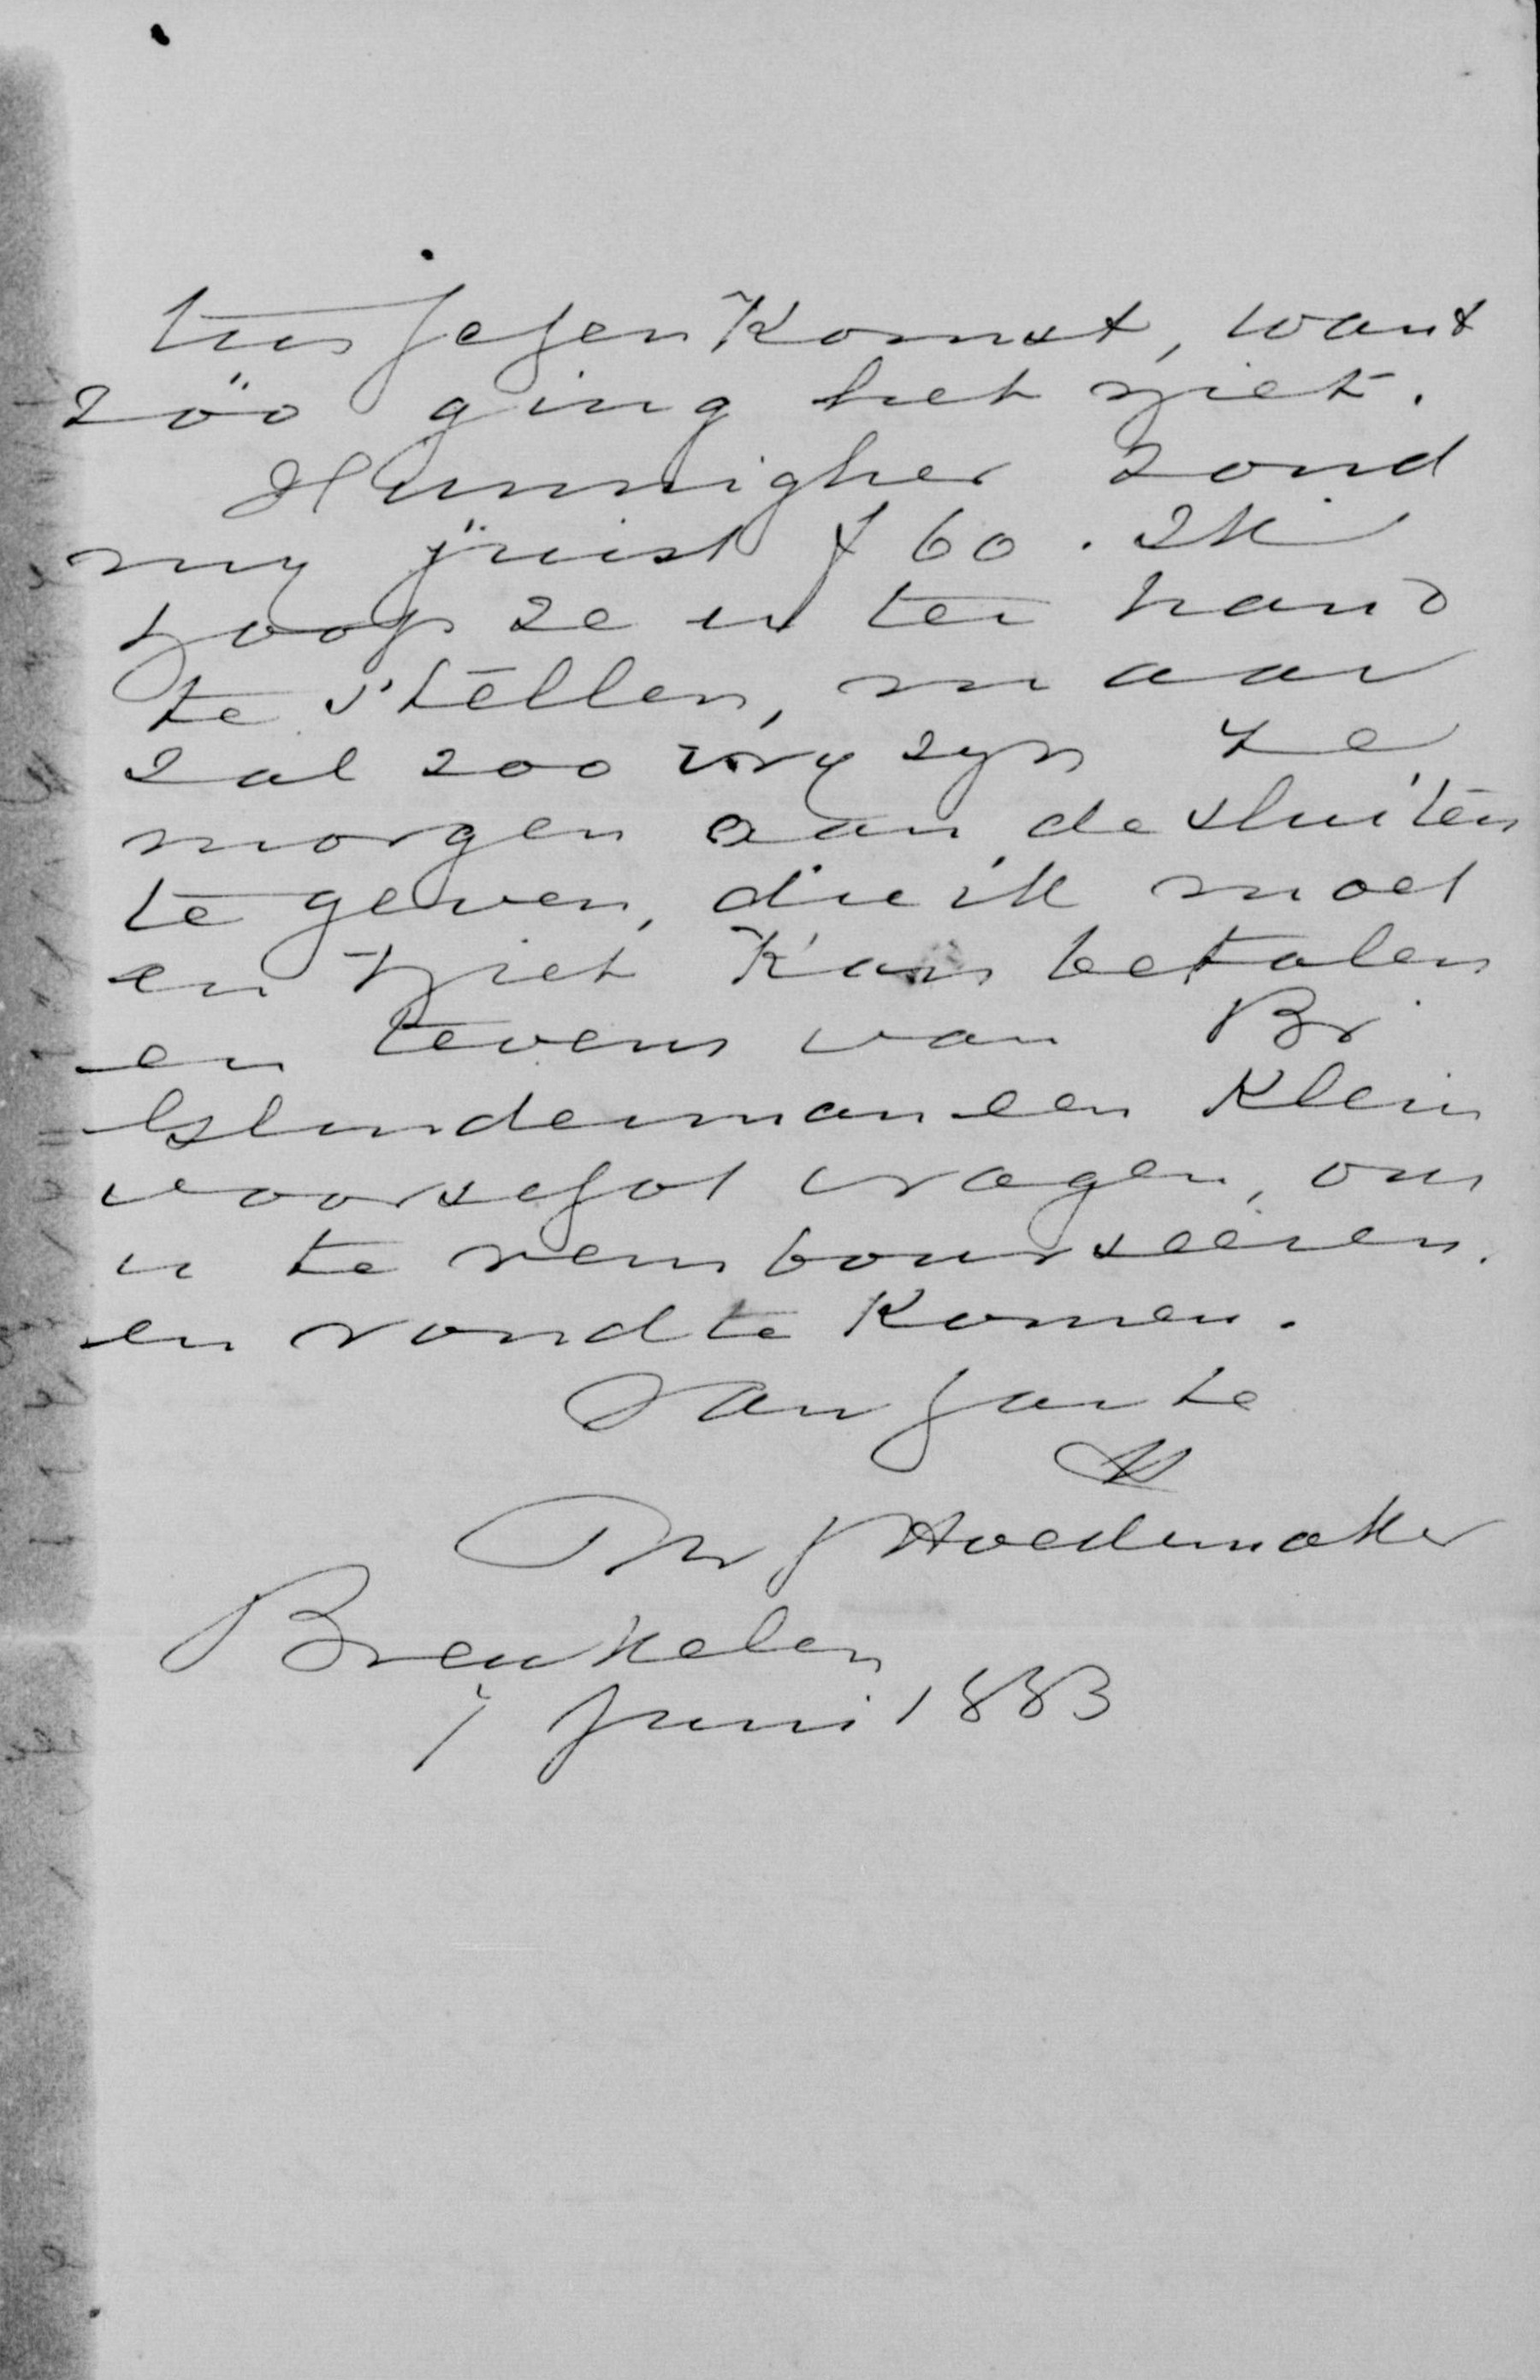 tusschenkomst, want
zóó ging het niet.
Hunnigher zond
my juist f 60. Ik
hoop ze u ter hand
te stellen, maar
zal zoo vry zyn ze
morgen aan de
te geven, die ik moet
en niet kan betalen
en tevens van Br
een klein
voorschot vragen, om
u te rembourseeren.
en rond te komen.
Hoedemaker
Breukelen
7 Juni 1883